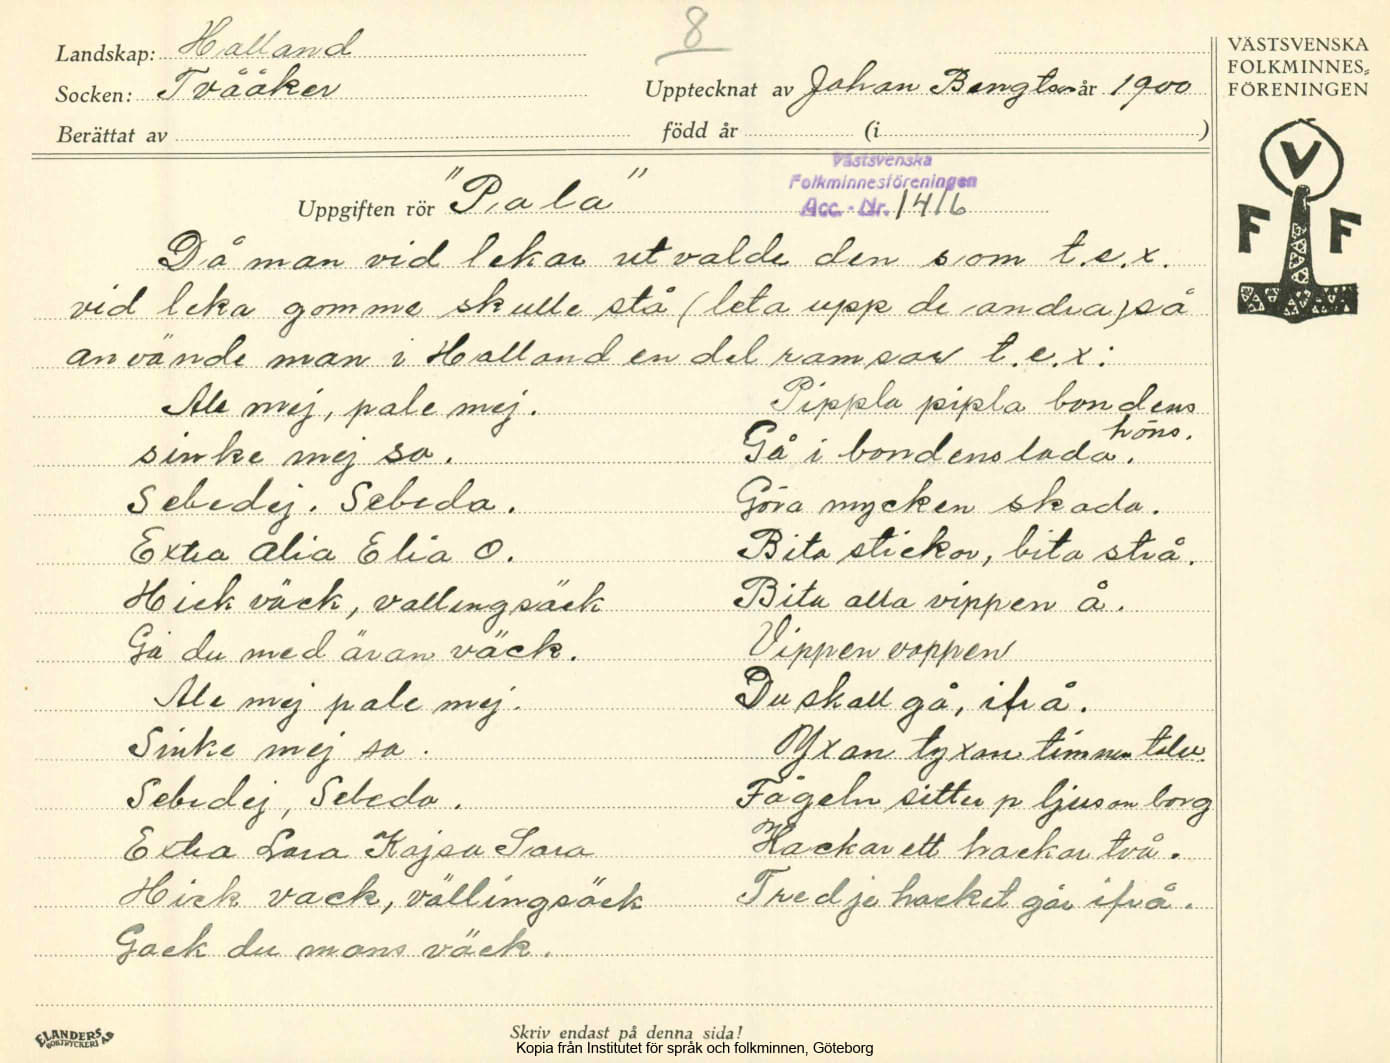 8
Landskap: Halland
Socken: Tvååker
Upptecknat av Johan Bengtson år 1900
Berättat av
född år (i )
VÄSTSVENSKA
FOLKMINNES=
FÖRENINGEN
V
F F
Västsvenska
Folkminnesföreningen
Acc. - Nr. 1416
Uppgiften rör "Pala"
Då man vid lekar utvalde den som t.e.x.
vid leka gomme skulle stå (leta upp de andra) så
använde man i Halland en del ramsor t.e.x:
Ale mej, pale mej.
sinke mej sa.
Sebedej. Sebeda.
Extra alia Elia O.
Hick väck, vallingsäck
Gå du med äran väck.
Ale mej pale mej.
Sinke mej sa.
Sebedej, Sebeda.
Extra Lara Kajsa Sara
Hick vack, vällingsäck
Gack du mans väck.
Pippla pipla bondens
höns.
Gå i bondens lada.
Göra mycken skada.
Bita stickor, bita strå.
Bita alla vippen å.
Vippen voppen
Du skall gå, ifrå.
Yxan tyxan timmen talu.
Fågeln sitter p ljusan borg
Hackar ett hackar två.
Tredje hacket går ifrå.
ELANDERS
BOKTRYCKERI AB
Skriv endast på denna sida!
Kopia från Institutet för språk och folkminnen, Göteborg